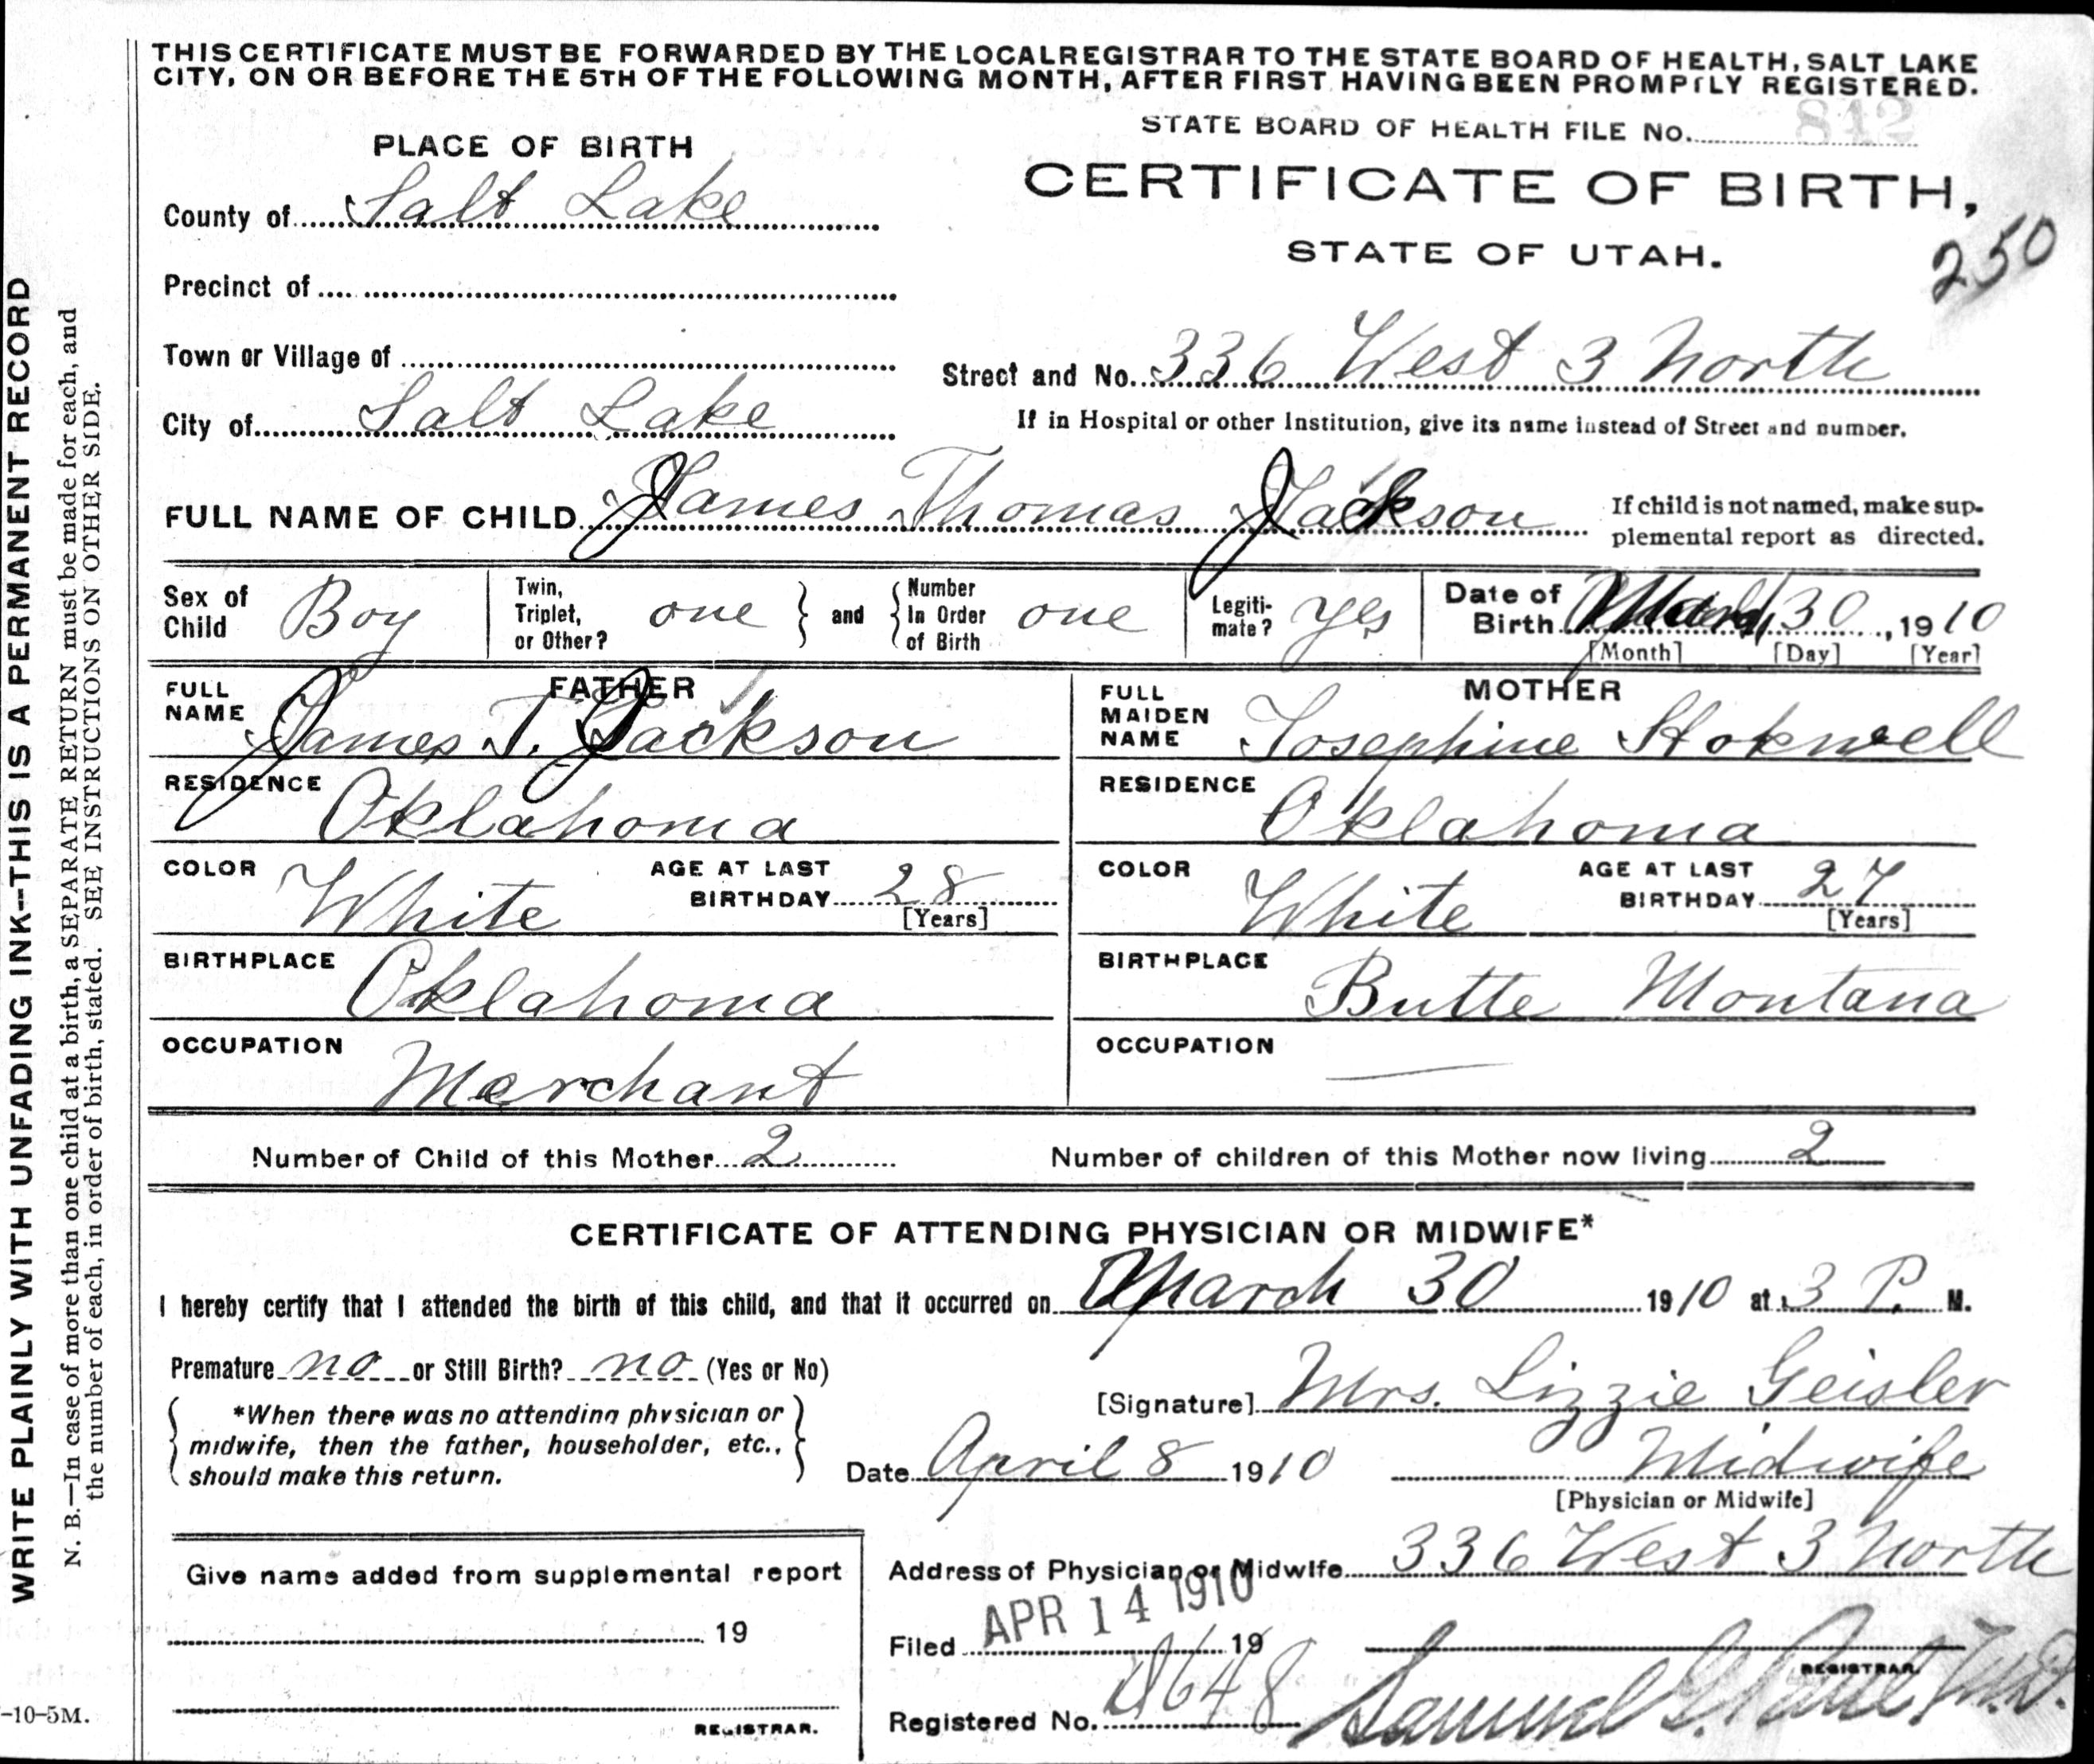 THIS CERTIFICATE MUST BE FORWARDED BY THE LOCAL REGISTRAR TO THE STATE BOARD OF HEALTH, SALT LAKE
CITY, ON OR BEFORE THE 5TH OF THE FOLLOWING MONTH, AFTER FIRST HAVING BEEN PROMPTLY REGISTERED.
STATE BOARD OF HEALTH FILE No. 842
PLACE OF BIRTH
CERTIFICATE OF BIRTH,
STATE OF UTAH.
250
County of Salt Lake
Precinct of
Town or Village of
Street and No. 336 West 3 North
City of Salt Lake
If in Hospital or other Institution, give its name instead of Street and number.
FULL NAME OF CHILD James Thomas Jackson
If child is not named, make sup-
plemental report as directed.
Sex of Child Boy
Twin, Triplet, or Other? one and Number In Order of Birth one
Legiti-mate? yes
Date of Birth March 30, 1910
[Month] [Day] [Year]
FATHER
FULL NAME James T. Jackson
RESIDENCE Oklahoma
COLOR White AGE AT LAST BIRTHDAY 28
[Years]
BIRTHPLACE Oklahoma
OCCUPATION Merchant
MOTHER
FULL MAIDEN NAME Josephine Stokwell
RESIDENCE Oklahoma
COLOR White AGE AT LAST BIRTHDAY 27
[Years]
BIRTHPLACE Butte Montana
OCCUPATION
Number of Child of this Mother 2 Number of children of this Mother now living 2
CERTIFICATE OF ATTENDING PHYSICIAN OR MIDWIFE*
I hereby certify that I attended the birth of this child, and that it occurred on March 30 1910 at 3 P. M.
Premature no or Still Birth? no (Yes or No)
*When there was no attending physician or
midwife, then the father, householder, etc.,
should make this return.
[Signature] Mrs. Lizzie Geisler
Date April 8 1910 Midwife
[Physician or Midwife]
Give name added from supplemental report
19
REGISTRAR.
Address of Physician or Midwife 336 West 3 North
Filed APR 14 1910 19
REGISTRAR.
Registered No. 648
Samuel G. Paul, M.D.
-10-5M.
WRITE PLAINLY WITH UNFADING INK--THIS IS A PERMANENT RECORD
N. B.—In case of more than one child at a birth, a SEPARATE RETURN must be made for each, and
the number of each, in order of birth, stated. SEE INSTRUCTIONS ON OTHER SIDE.